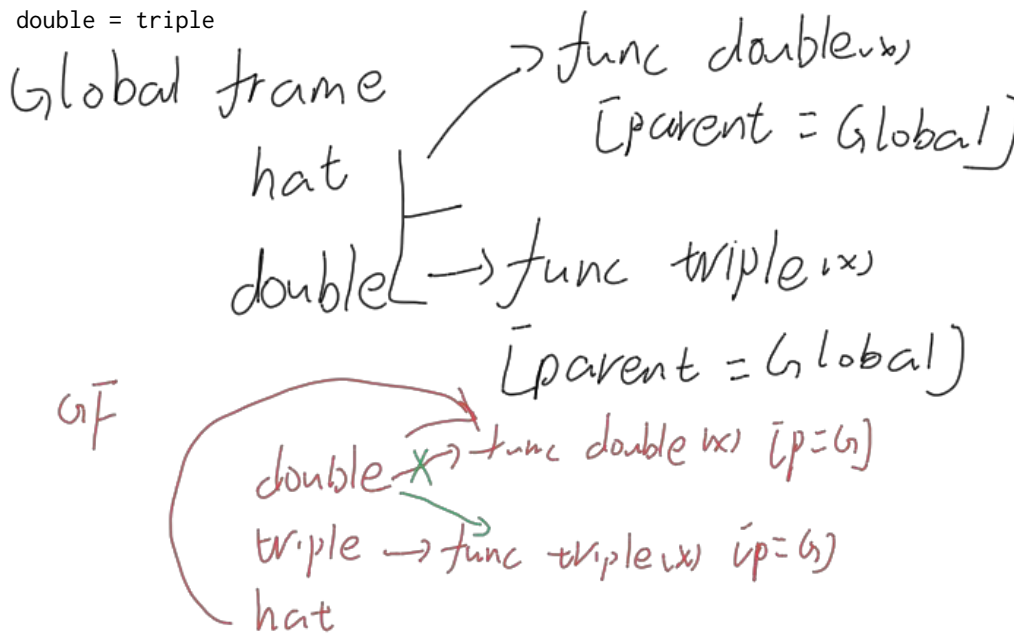 double = triple
Global frame
func double(x)
[parent = Global]
hat
double
func triple(x)
[parent = Global]
GF
double X func double(x) [p=G]
triple → func triple(x) [p=G]
hat